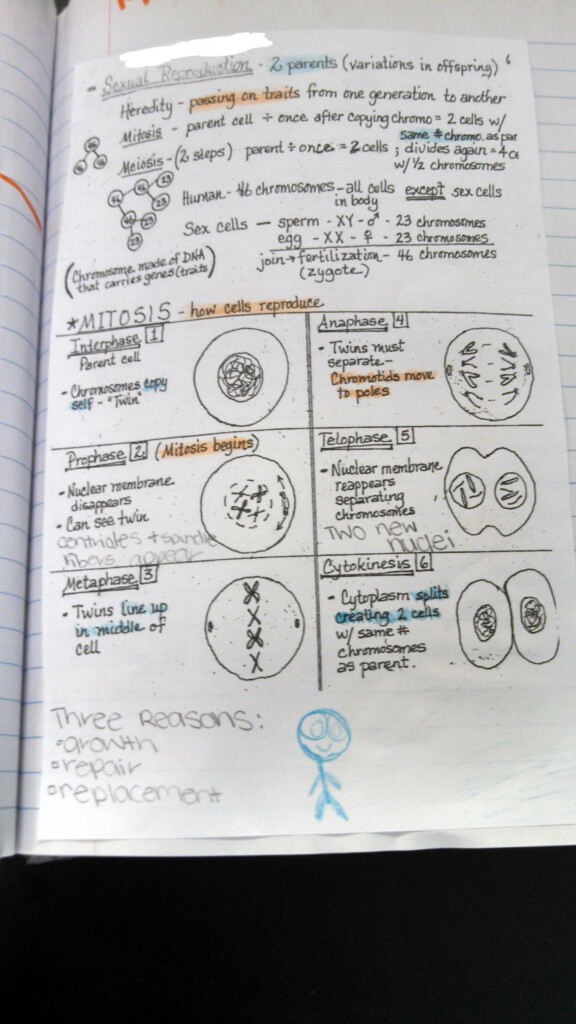 - Sexual Reproduction - 2 parents (variations in offspring)
Heredity - passing on traits from one generation to another
Mitosis - parent cell ÷ once after copying chromo = 2 cells w/
same # chromo. as par
Meiosis - (2 steps) parent ÷ once = 2 cells ; divides again = 4 ce
w/ ½ chromosomes
46 46 23
46 23
23
23
Human - 46 chromosomes - all cells except sex cells
in body
Sex cells - sperm - XY - ♂ - 23 chromosomes
egg - XX - ♀ - 23 chromosomes
join → fertilization - 46 chromosomes
(zygote)
(Chromosome made of DNA
that carries genes (traits)
*MITOSIS - how cells reproduce
Interphase 1
Parent cell
• Chromosomes copy
self - "Twin"
Prophase 2 (Mitosis begins)
• Nuclear membrane
disappears
• Can see twin
centrioles + spindle
fibers appear
Metaphase 3
• Twins line up
in middle of
cell
Anaphase 4
• Twins must
separate -
Chromotids move
to poles
Telophase 5
• Nuclear membrane
reappears
separating
chromosomes
Two new
nuclei
Cytokinesis 6
• Cytoplasm splits
creating 2 cells
w/ same #
chromosomes
as parent.
Three Reasons:
▫growth
▫repair
▫replacement